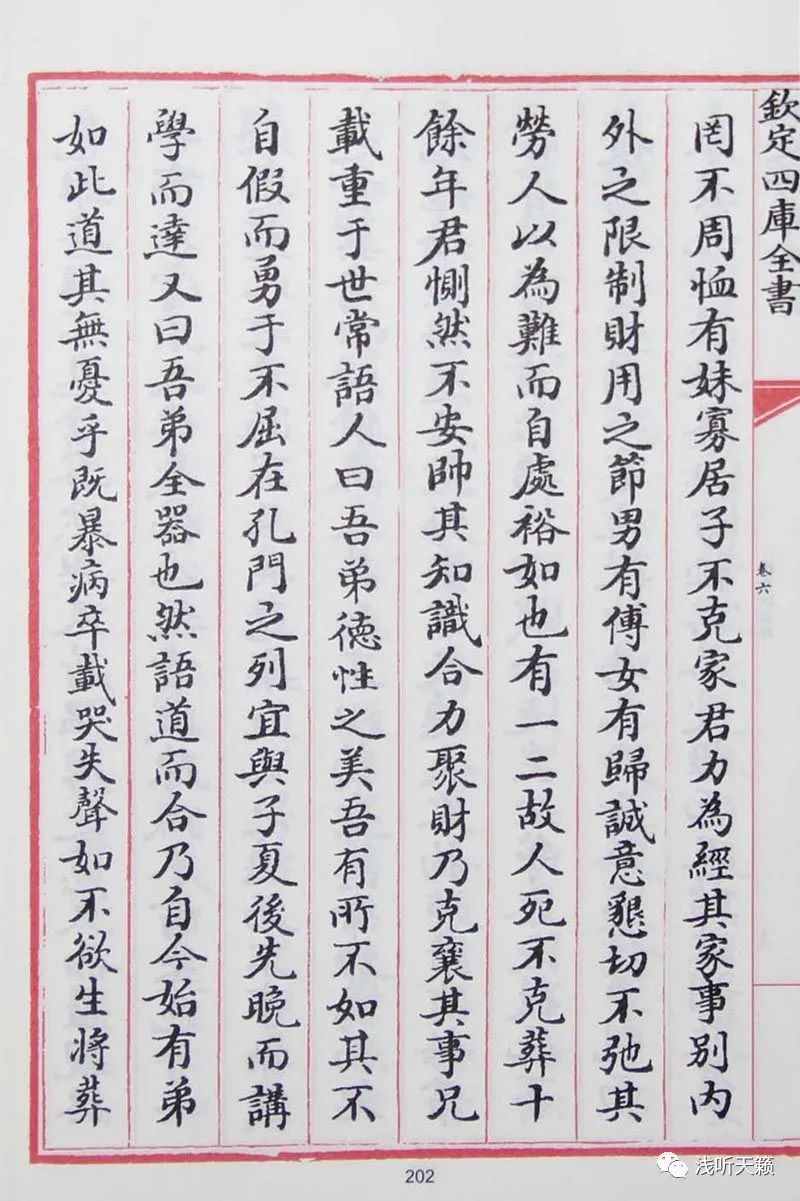 欽定四庫全書
卷六
罔不周恤有妹寡居子不克家君力為經其家事別內
外之限制財用之節男有傅女有歸誠意懇切不弛其
勞人以為難而自處裕如也有一二故人死不克葬十
餘年君惻然不安帥其知識合力聚財乃克襄其事兄
載重于世常語人曰吾弟德性之美吾有所不如其不
自假而勇于不屈在孔門之列宜與子夏後先晚而講
學而達又曰吾弟全器也然語道而合乃自今始有弟
如此道其無憂乎既暴病卒載哭失聲如不欲生將葬
202
浅听天籁